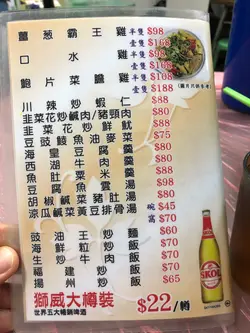 薑葱霸王雞 半隻 $98
壹隻 $168
口水雞 半隻 $98
壹隻 $168
鮑片菜膽雞 半隻 $108
壹隻 $188
(圖片只供參考)
川辣炒蝦仁 $80
韭菜花炒鹹肉/豬頸肉 $80
韭菜花炒鮮魷 $88
豆豉鯪魚油麥菜 $75
海皇豆腐羹 $80
西湖牛肉羹 $80
魚肚粟米羹 $80
豆腐魚雲湯 $80
胡椒鹹菜豬肚湯 $80
涼瓜鹹菜黃豆排骨湯 $80
碗 $45
窩 $70
豉油王炒麵 $60
海鮮粒炒飯 $70
生炒牛肉飯 $70
福建炒飯 $70
揚州炒飯 $65
獅威大樽裝
世界五大暢銷啤酒
$22/樽
SKOL